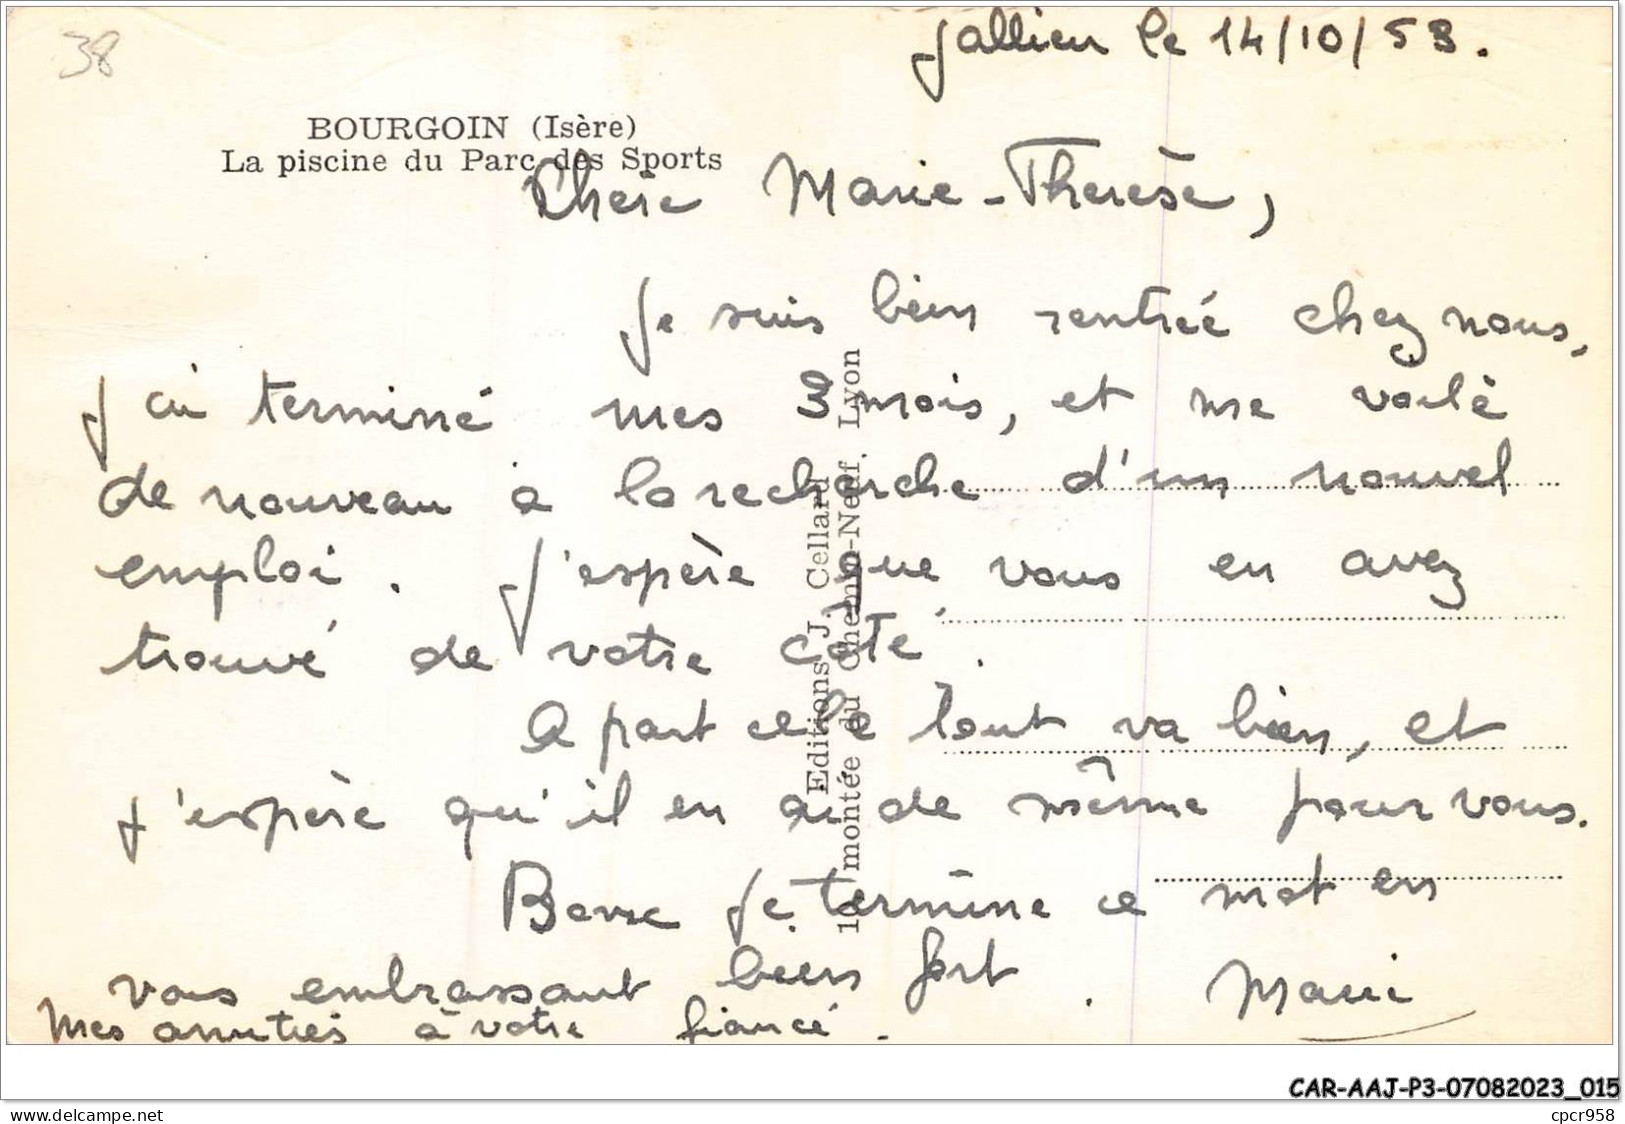 38
Jallieu le 14/10/53.
BOURGOIN (Isère)
La piscine du Parc des Sports
Chère Marie-Thérèse,
Je suis bien rentrée chez nous,
j'ai terminé mes 3 mois, et me voilà
de nouveau à la recherche d'un nouvel
emploi. J'espère que vous en avez
trouvé de votre côté.
A part cela tout va bien, et
j'espère qu'il en ai de même pour vous.
Bonne je termine ce mot en
vous embrassant bien fort. Marie
Mes amitiés à votre fiancé.
Editions J. Cellard
10 montée du Chemin-Neuf. Lyon
CAR-AAJ-P3-07082023_015
www.delcampe.net
cpcr958